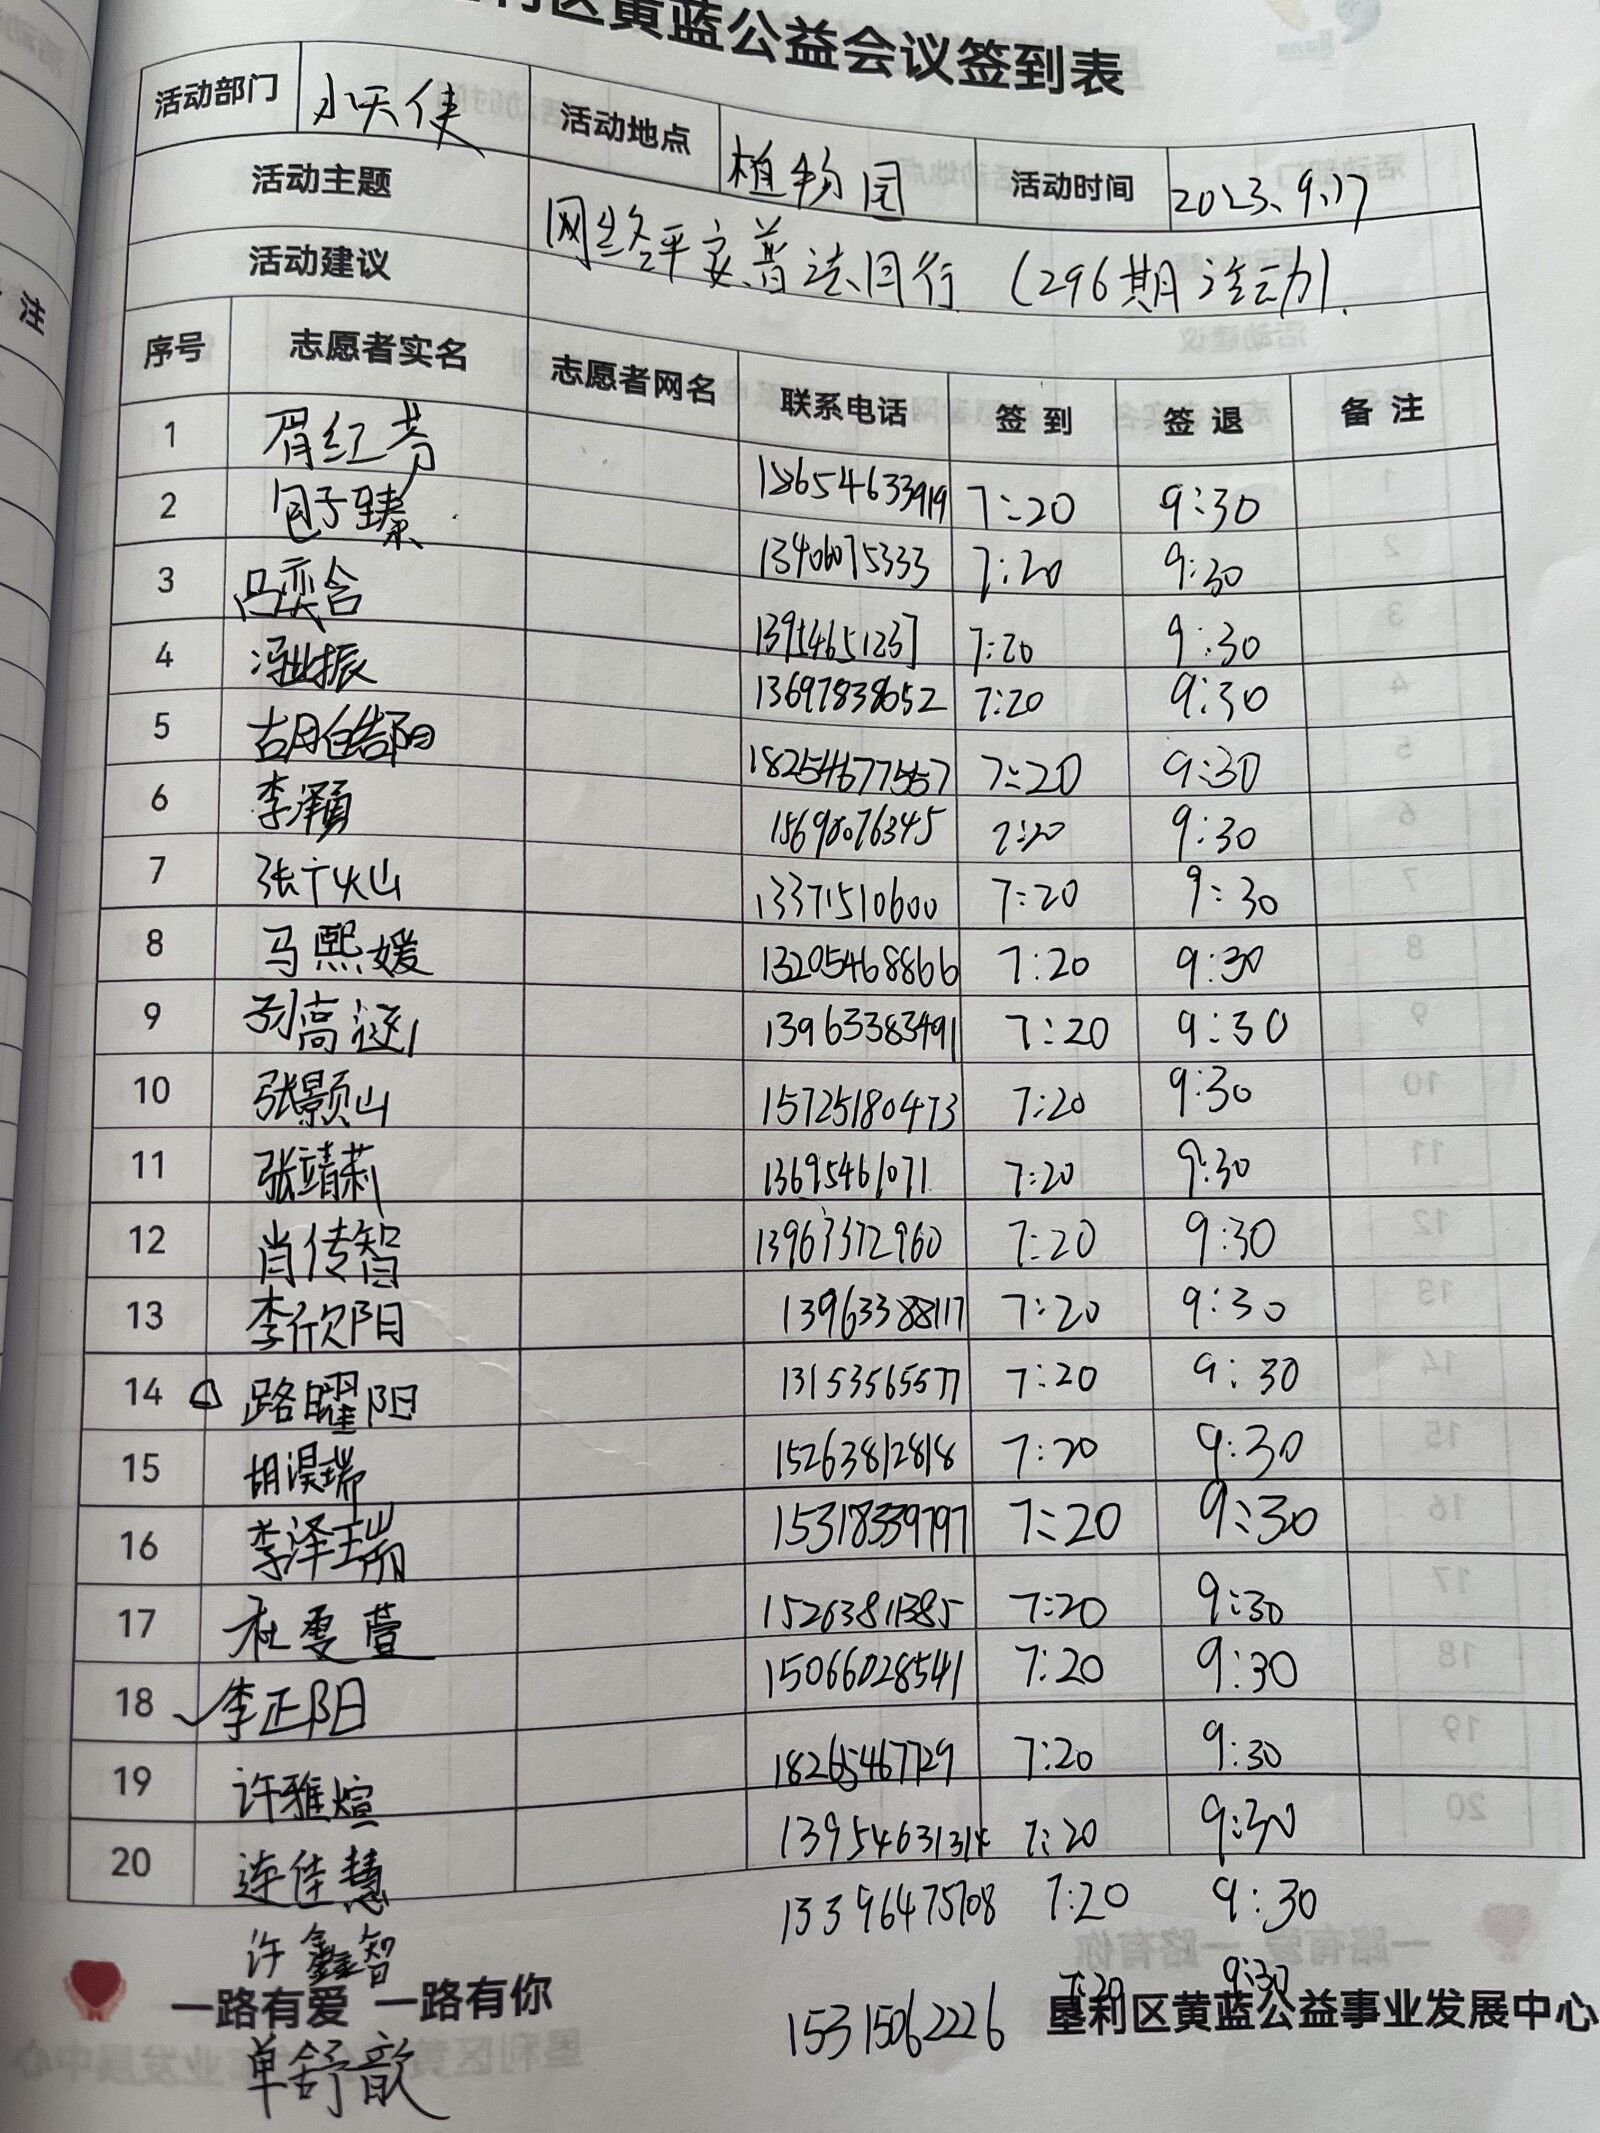 利区黄蓝公益会议签到表
活动部门 小天使 活动地点 植物园 活动时间 2023.9.17
活动主题 网络平安普法同行 (296期活动)
活动建议
序号 志愿者实名 志愿者网名 联系电话 签到 签退 备注
1 胥红芳 18654633919 7:20 9:30
2 包子臻 13406075333 7:20 9:30
3 吕奕含 13954651237 7:20 9:30
4 冯业振 13697838652 7:20 9:30
5 胡皓阳 18254677557 7:20 9:30
6 李泽勇 7:20 9:30
7 张 山 13371510600 7:20 9:30
8 马熙媛 13205468866 7:20 9:30
9 高 13963383491 7:20 9:30
10 张颢山 15725180473 7:20 9:30
11 张靖莉 13695461071 7:20 9:30
12 肖传智 13963372960 7:20 9:30
13 李欣阳 13963388117 7:20 9:30
14 路曜阳 13153565577 7:20 9:30
15 胡淏瑞 15263812818 7:20 9:30
16 李泽瑞 15318339797 7:20 9:30
17 杜雯萱 15263811385 7:20 9:30
18 李正阳 15066028541 7:20 9:30
19 许雅煊 18265467729 7:20 9:30
20 连佳慧 13954631314 7:20 9:30
许鑫智 13396475708 7:20 9:30
单舒歆 15315062226 7:20 9:30
一路有爱 一路有你 垦利区黄蓝公益事业发展中心
注